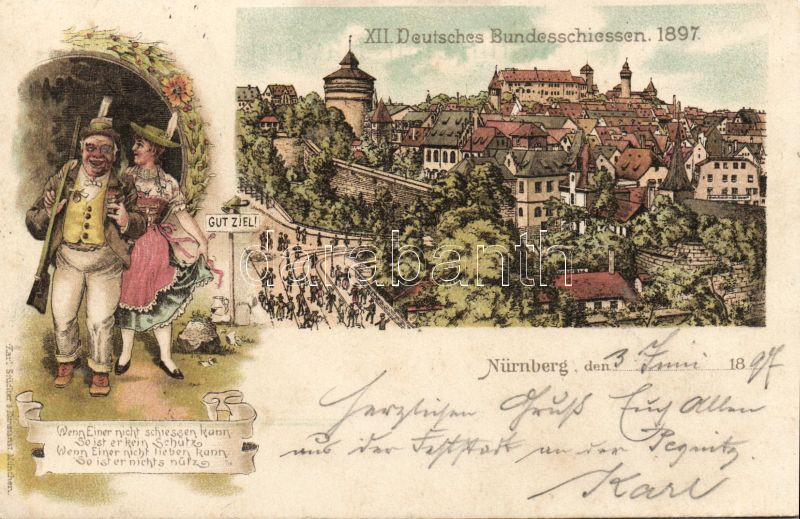 XII. Deutsches Bundesschiessen. 1897.
GUT ZIEL!
darabanth
Nürnberg, den 3 Juni 1897
Herzlichen Gruß Euch Allen
aus der Feststadt an der Pegnitz
Karl
Wenn Einer nicht schiessen kann
So ist er kein Schütz
Wenn Einer nicht lieben kann
So ist er nichts nütz
München.